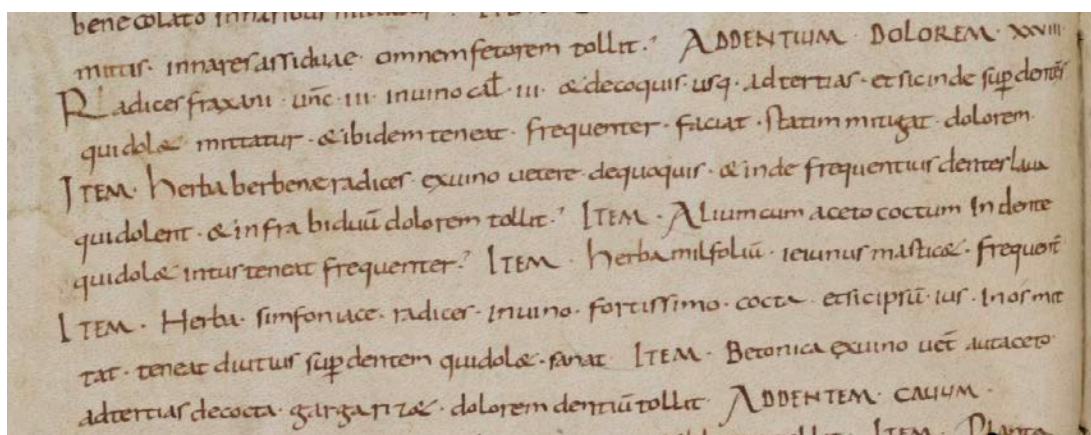 bene colato innaribus
mittis · innares assiduae omnem fetorem tollit · ADDENTIUM · DOLOREM · XXVIII ·
Radices fraxani · unc̄ · III · inuino cał · III · & decoquis · usq · ad tertias · et sic inde sup̱ dentēs
qui dol& mittatur · & ibidem teneat · frequenter · faciat · statim mitigat · dolorem
ITEM · herba berbene radices · exuino uetere · dequoquis · & inde frequentius dentes laua
qui dolent · & infra biduū dolorem tollit · ITEM · Alium cum aceto coctum In dente
qui dol& intus teneat frequenter · ITEM · herba milfoliū · ieiunus mastic& · frequent̄
ITEM · Herba · simfoniace · radices · inuino · fortissimo · cocta · et sic ipsū · ius · In os mit
tat · teneat diutius sup̱ dentem qui dol& · sanat ITEM · Betonica exuino uet̄ aut aceto
ad tertias decocta · gargariz& · dolorem dentiū tollit ADDENTEM · CAUUM ·
ITEM · Planta